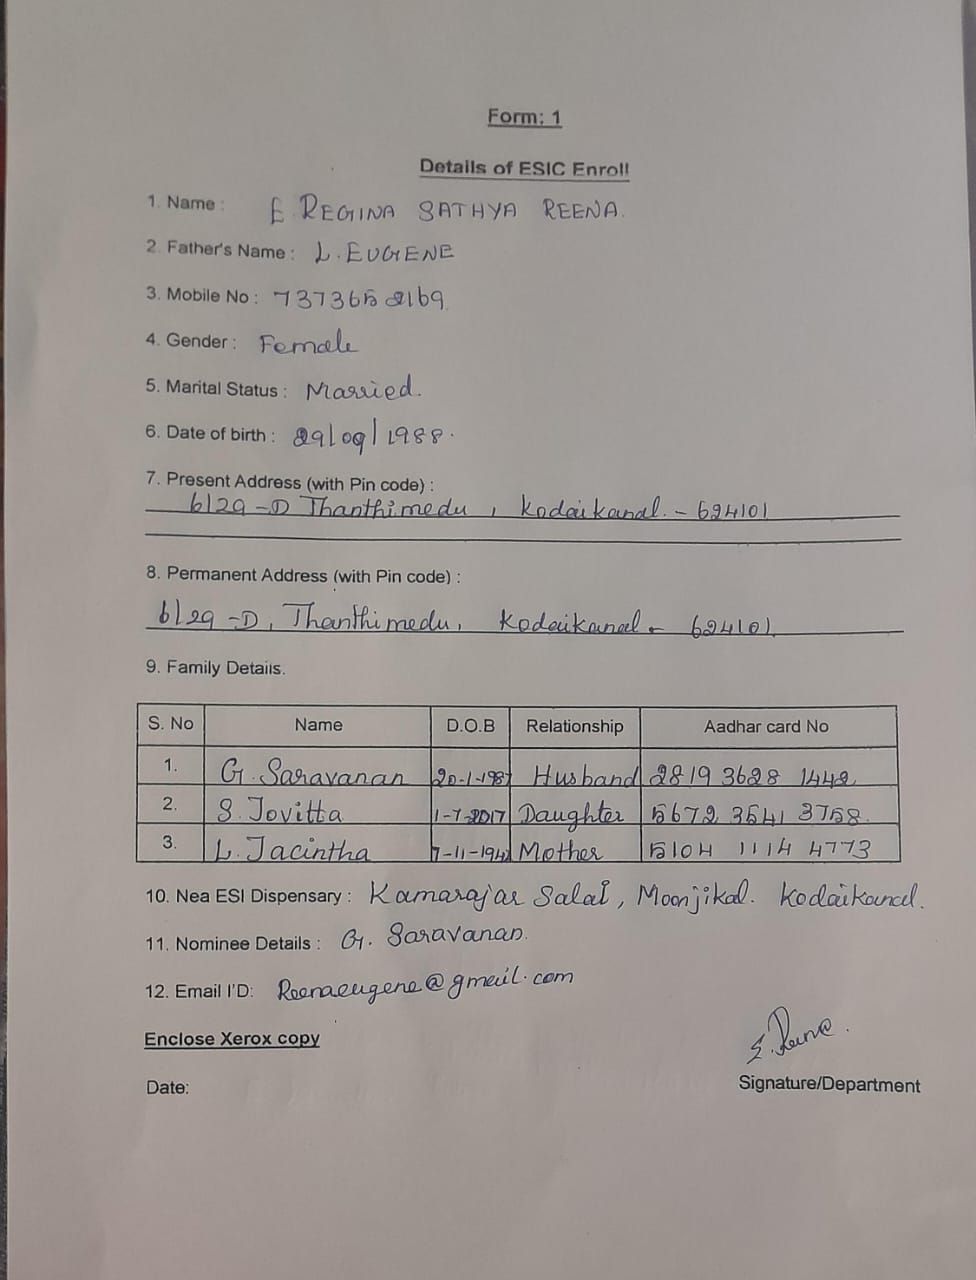 Form: 1
Details of ESIC Enroll
1. Name : E REGINA SATHYA REENA.
2. Father's Name : L. EUGENE
3. Mobile No : 7373652169
4. Gender : Female
5. Marital Status : Married.
6. Date of birth : 29/09/1988.
7. Present Address (with Pin code) :
6/29-D Thanthimedu, Kodaikanal. - 624101
8. Permanent Address (with Pin code) :
6/29-D, Thanthimedu, Kodaikanal - 624101
9. Family Details.
S. No Name D.O.B Relationship Aadhar card No
1. G. Saravanan 20-1-1987 Husband 2819 3628 1442
2. S. Jovitta 1-7-2017 Daughter 5672 3541 3758.
3. L. Jacintha Mother 5104 1114 4773
10. Nea ESI Dispensary : Kamarajar Salai, Moonjikal. Kodaikanal.
11. Nominee Details : G. Saravanan.
12. Email I'D: Reenaeugene@gmail.com
Enclose Xerox copy
E. Reena.
Date:
Signature/Department